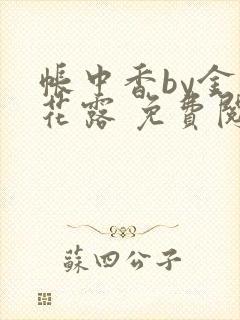 帳中香by金
花露 免費閱
蘇四公子